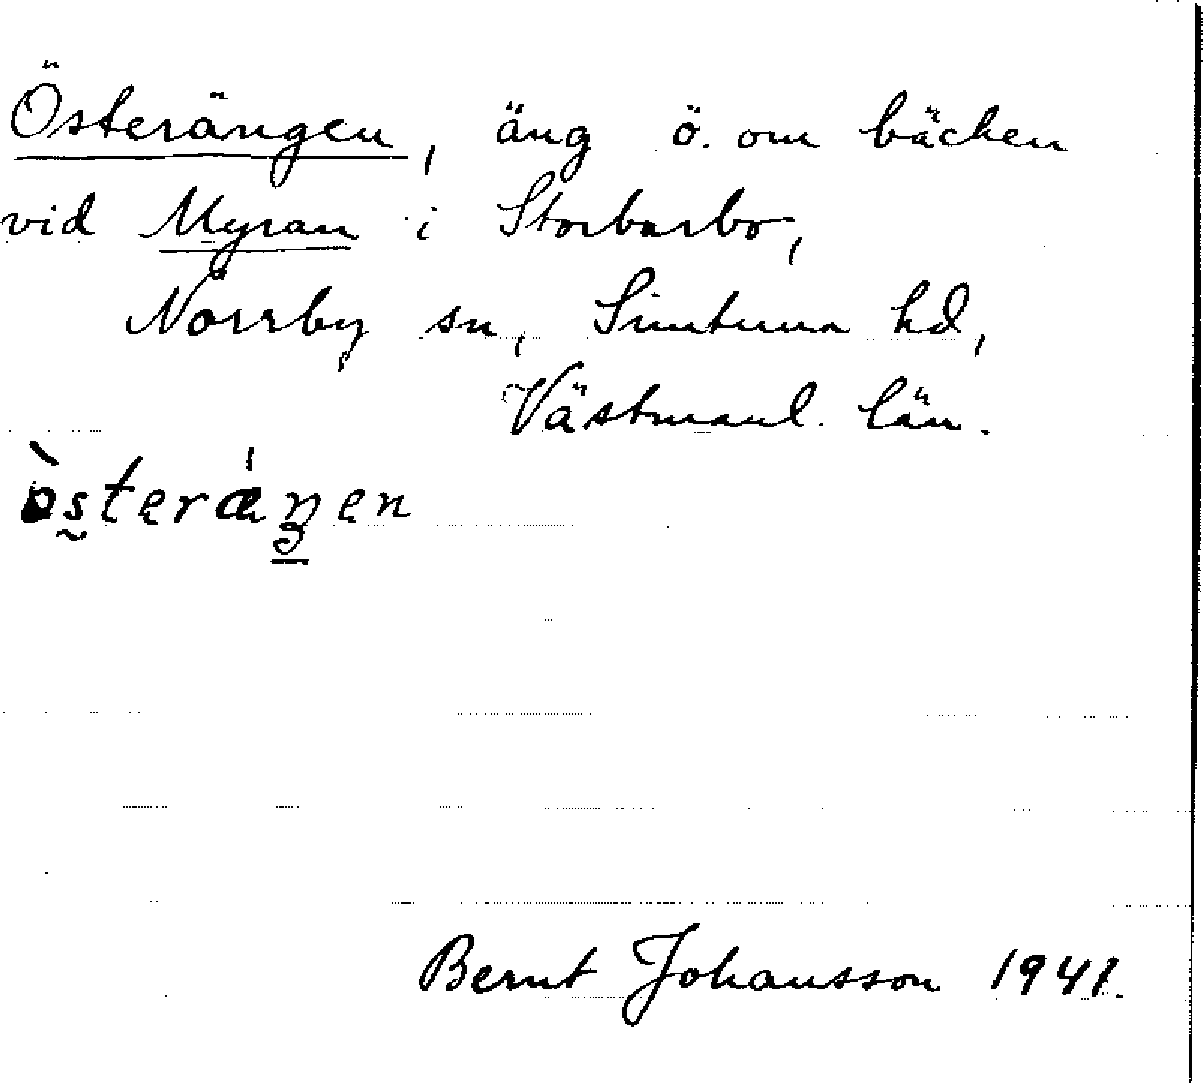 Österängen, äng ö. om bäcken
vid Myran i Storbarbo,
Nörrby sn, Simtuna hd,
Västmanl. län.
ò̀sterǽŋen
Bernt Johansson 1941.